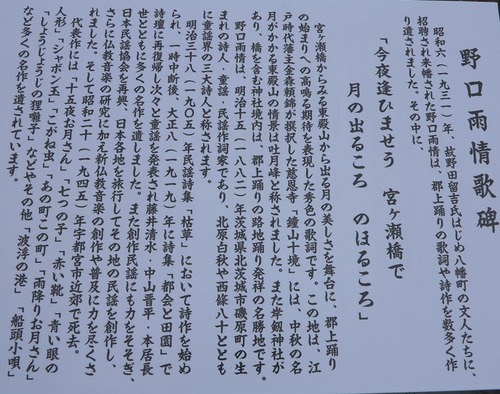 野口雨情歌碑
昭和六(一九三一)年、故野田留吉氏はじめ八幡町の文人たちに、
招聘され来幡された野口雨情は、郡上踊りの歌詞や詩作を数多く作
り遺されました。その中に、
「今夜逢ひませう　宮ヶ瀬橋で
月の出るころ　のほるころ」
宮ヶ瀬橋からみる東殿山から出る月の美しさを舞台に、郡上踊り
の始まりへの高鳴る期待を表現した秀色の歌詞です。この地は、江
戸時代藩主金森頼錦が撰択した慈恩寺「鐘山十境」には、中秋の名
月がかかる東殿山の情景は吐月峰と称されました。また岸剱神社が
あり、橋を含む神社境内は、郡上踊りの路地踊り発祥の名勝地です。
野口雨情は、明治十五(一八八二)年茨城県北茨城市磯原町の生
まれの詩人、童謡・民謡作詞家であり、北原白秋や西條八十ととも
に童謡界の三大詩人と称されます。
明治三十八(一九〇五)年民謡詩集「枯草」において詩作を始め
られ、一時中断後、大正八(一九一九)年に詩集「都会と田園」で
詩壇に再復帰し次々と童謡を発表され藤井清水・中山晋平・本居長
世とともに多くの名作を遺しました。また創作民謡にも力をそそぎ、
日本民謡協会を再興、日本各地を旅行してその地の民謡を創作し、
さらに仏教音楽の研究に加え新仏教音楽の創作や普及に力を尽くさ
れました。そして昭和二十(一九四五)年宇都宮市近郊で死去。
代表作には「十五夜お月さん」「七つの子」「赤い靴」「青い眼の
人形」「シャボン玉」「こがね虫」「あの町この町」「雨降りお月さん」
「しょうじょうじの狸囃子」などやその他「波浮の港」「船頭小唄」
など多くの名作を遺されています。